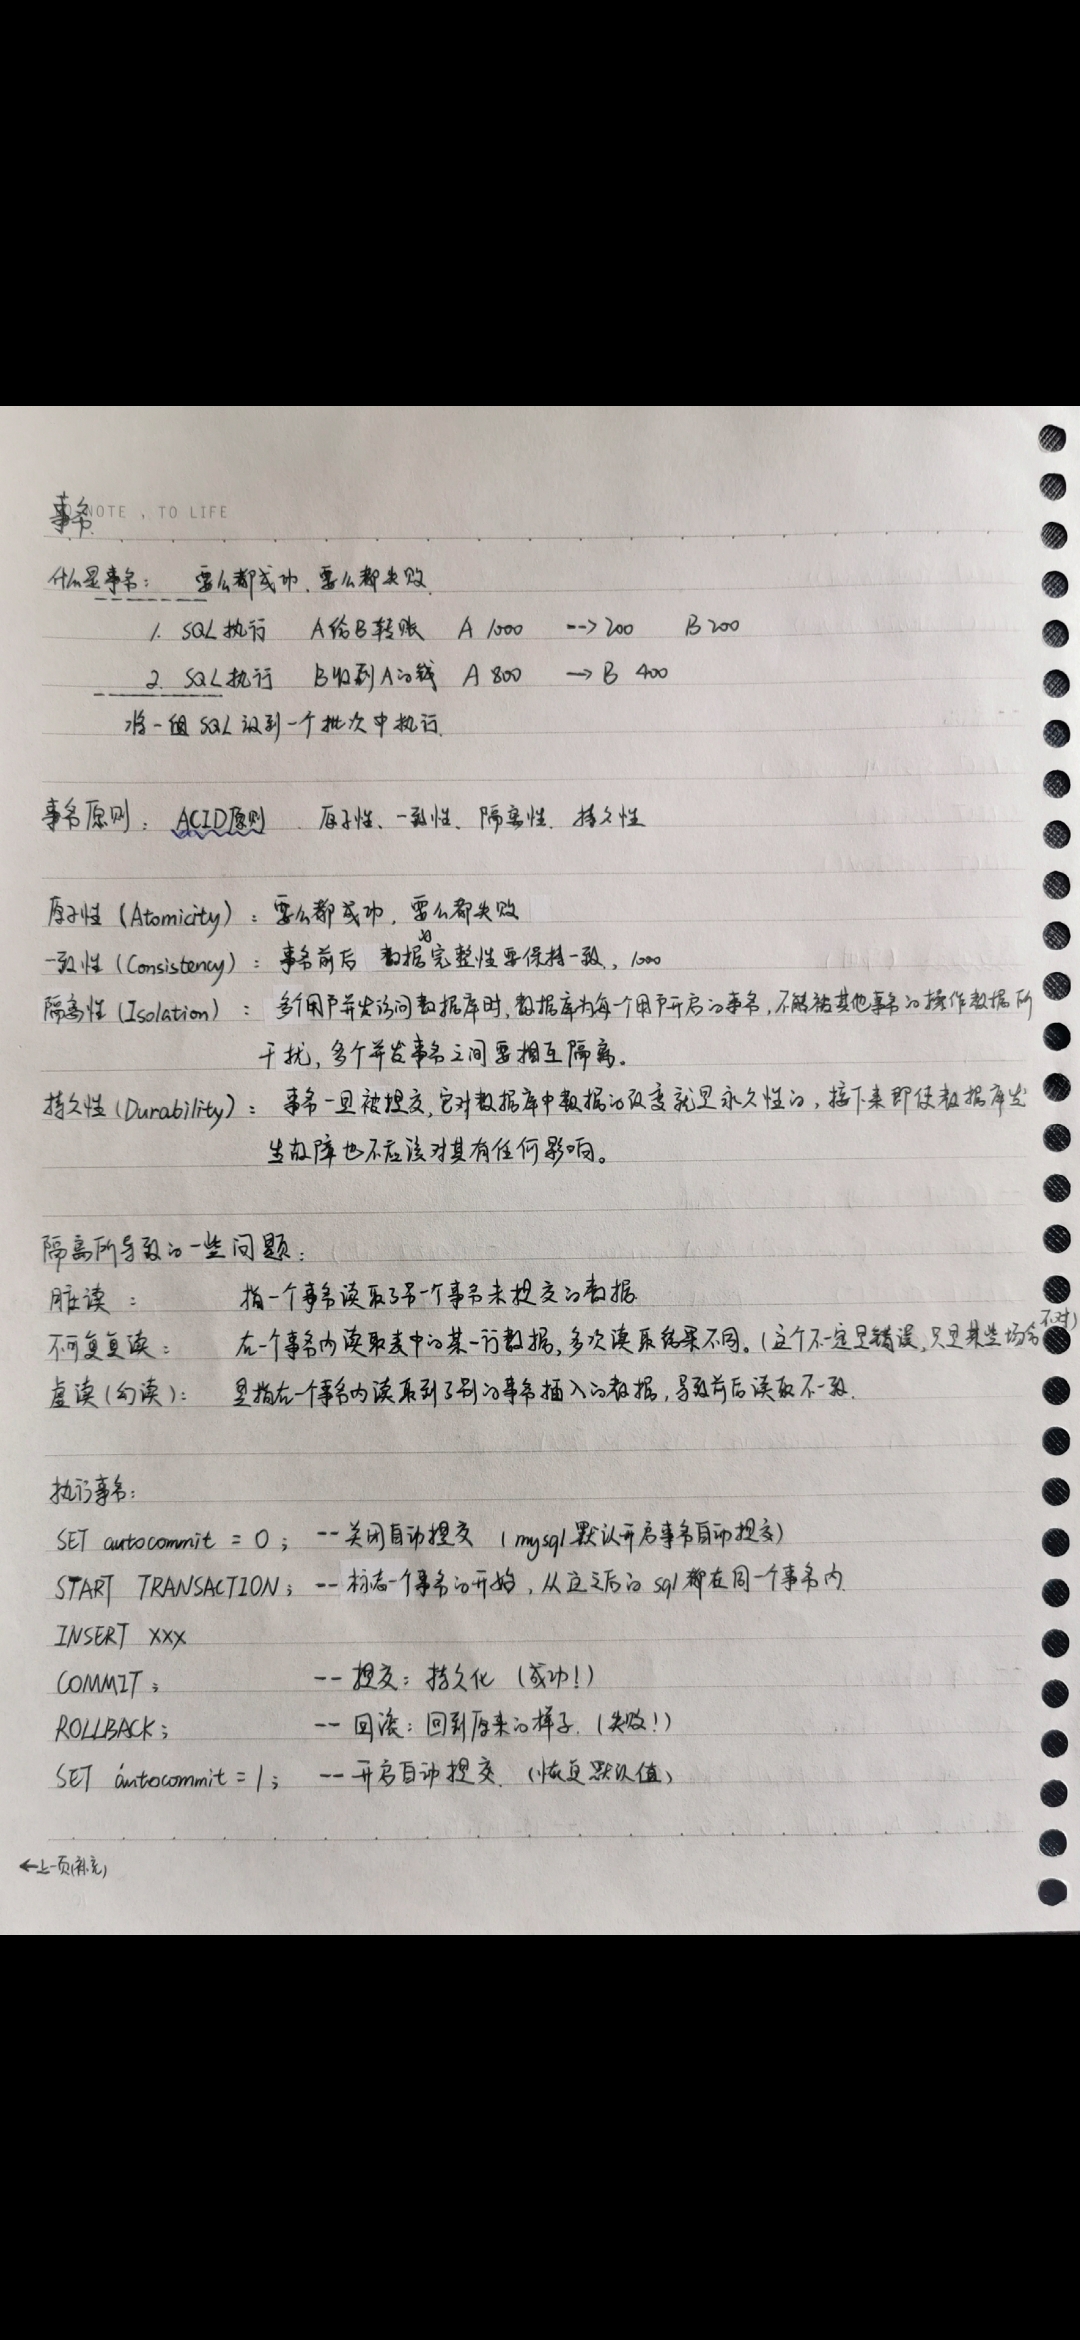 事务
NOTE , TO LIFE
什么是事务: 要么都成功、要么都失败
1. SQL执行 A给B转账 A 1000 --> 200 B 200
2. SQL执行 B收到A的钱 A 800 —> B 400
将一组SQL放到一个批次中执行
事务原则: ACID原则 原子性、一致性、隔离性、持久性
原子性 (Atomicity): 要么都成功, 要么都失败
一致性 (Consistency): 事务前后 数据的完整性要保持一致, 1000
隔离性 (Isolation): 多个用户并发访问数据库时, 数据库为每一个用户开启的事务, 不能被其他事务的操作数据所
干扰, 多个并发事务之间要相互隔离。
持久性 (Durability): 事务一旦被提交, 它对数据库中数据的改变就是永久性的, 接下来即使数据库发
生故障也不应该对其有任何影响。
隔离所导致的一些问题:
脏读: 指一个事务读取了另一个事务未提交的数据
不可复复读: 在一个事务内读取表中的某一行数据, 多次读取结果不同。(这个不一定是错误, 只是某些场合不对)
虚读(幻读): 是指在一个事务内读取到了别的事务插入的数据, 导致前后读取不一致.
执行事务:
SET autocommit = 0; --关闭自动提交 (mysql默认开启事务自动提交)
START TRANSACTION; -- 标志一个事务的开始, 从这之后的sql都在同一个事务内
INSERT XXX
COMMIT; -- 提交: 持久化 (成功!)
ROLLBACK; -- 回滚: 回到原来的样子. (失败!)
SET autocommit = 1; -- 开启自动提交. (恢复默认值)
←上一页(补充)